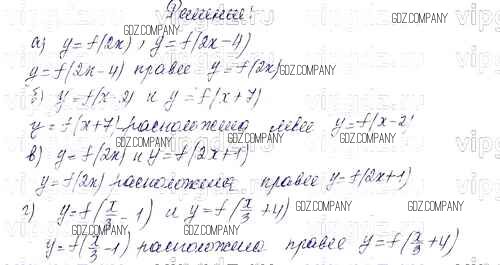 Решение:
а) y=f(2x), y=f(2x-4)
y=f(2x-4) правее y=f(2x)
б) y=f(x-2) и y=f(x+7)
y=f(x+7) расположена левее y=f(x-2)
в) y=f(2x) и y=f(2x+1)
y=f(2x) расположена правее y=f(2x+1)
г) y=f(x/3-1) и y=f(x/3+4)
y=f(x/3-1) расположена правее y=f(x/3+4)
GDZ.COMPANY
GDZ.COMPANY
GDZ.COMPANY
GDZ.COMPANY
GDZ.COMPANY
GDZ.COMPANY
GDZ.COMPANY
GDZ.COMPANY
GDZ.COMPANY
GDZ.COMPANY
GDZ.COMPANY
GDZ.COMPANY